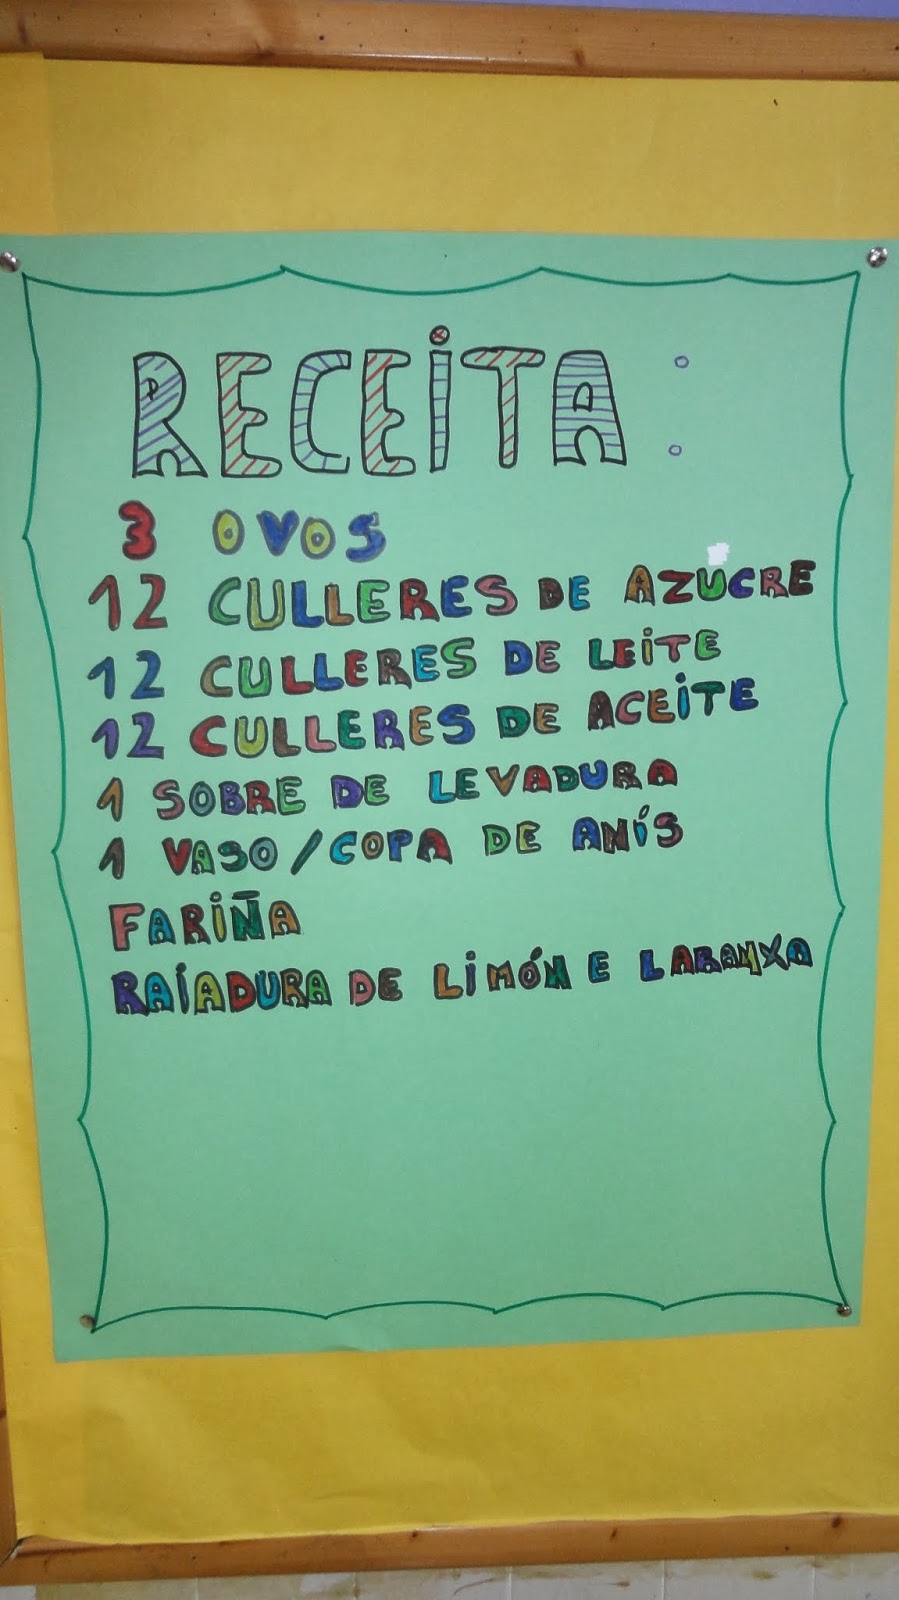 RECEITA:
3 OVOS
12 CULLERES DE AZUCRE
12 CULLERES DE LEITE
12 CULLERES DE ACEITE
1 SOBRE DE LEVADURA
1 VASO/COPA DE ANÍS
FARIÑA
RAÍADURA DE LIMÓN E LARANXA